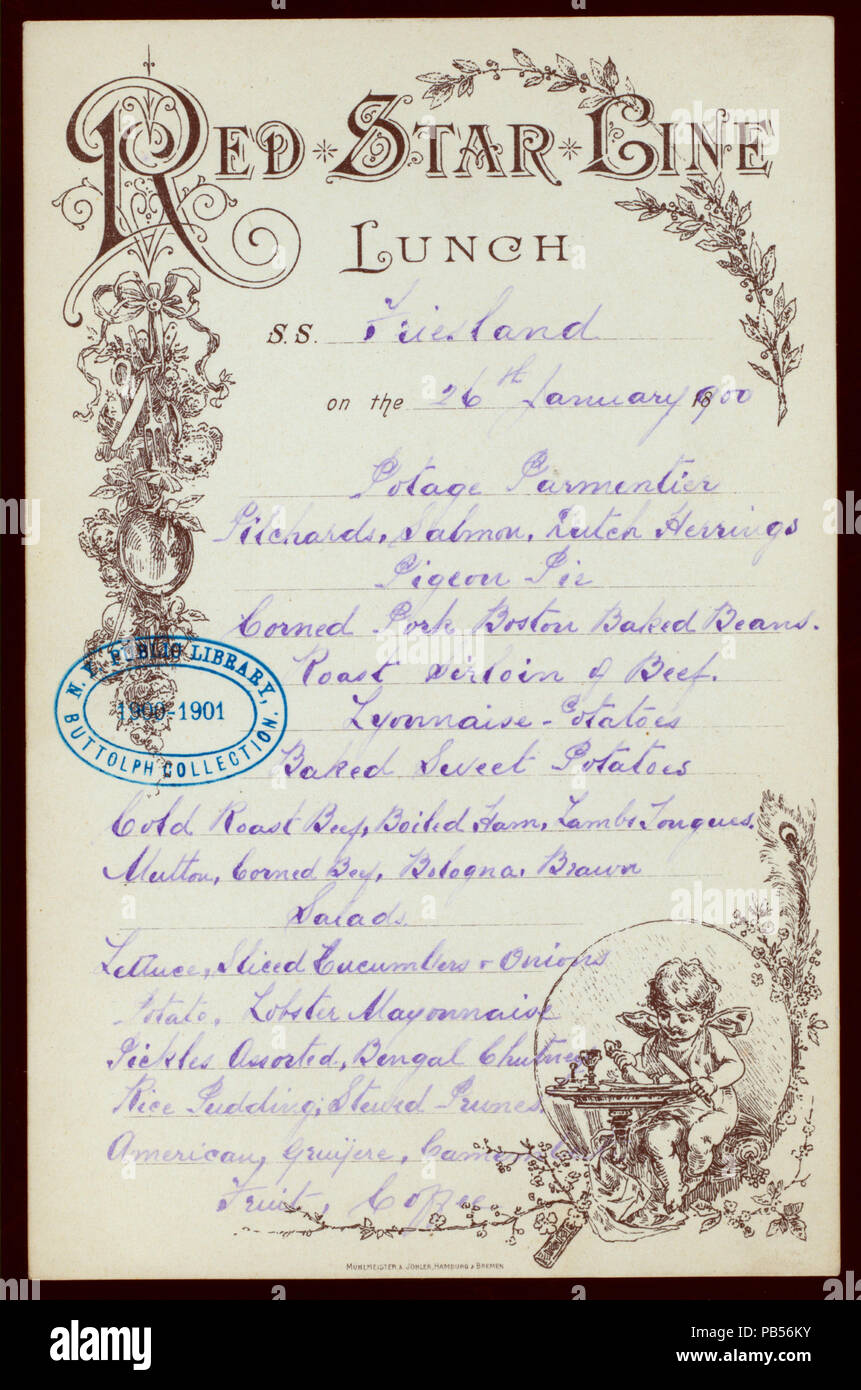 RED * STAR * LINE
LUNCH
S.S. Friesland
on the 26th January 18900
Potage Parmentier
Pilchards, Salmon, Dutch Herrings
Pigeon Pie
Corned Pork Boston Baked Beans.
Roast Sirloin of Beef.
Lyonnaise-Potatoes
Baked Sweet Potatoes
Cold Roast Beef, Boiled Ham, Lambs Tongues.
Mutton, Corned Beef, Bologna, Brawn
Salads
Lettuce, Sliced Cucumbers & Onions
Potato, Lobster Mayonnaise
Pickles Assorted, Bengal Chutney
Rice Pudding, Stewed Prunes
American, Gruijere, Camembert
Fruit, Coffee
N. Y. PUBLIC LIBRARY,
1900-1901
BUTTOLPH COLLECTION.
MÜHLMEISTER & JOHLER, HAMBURG & BREMEN
alamy
alamy
Image ID: PB56KY
www.alamy.com